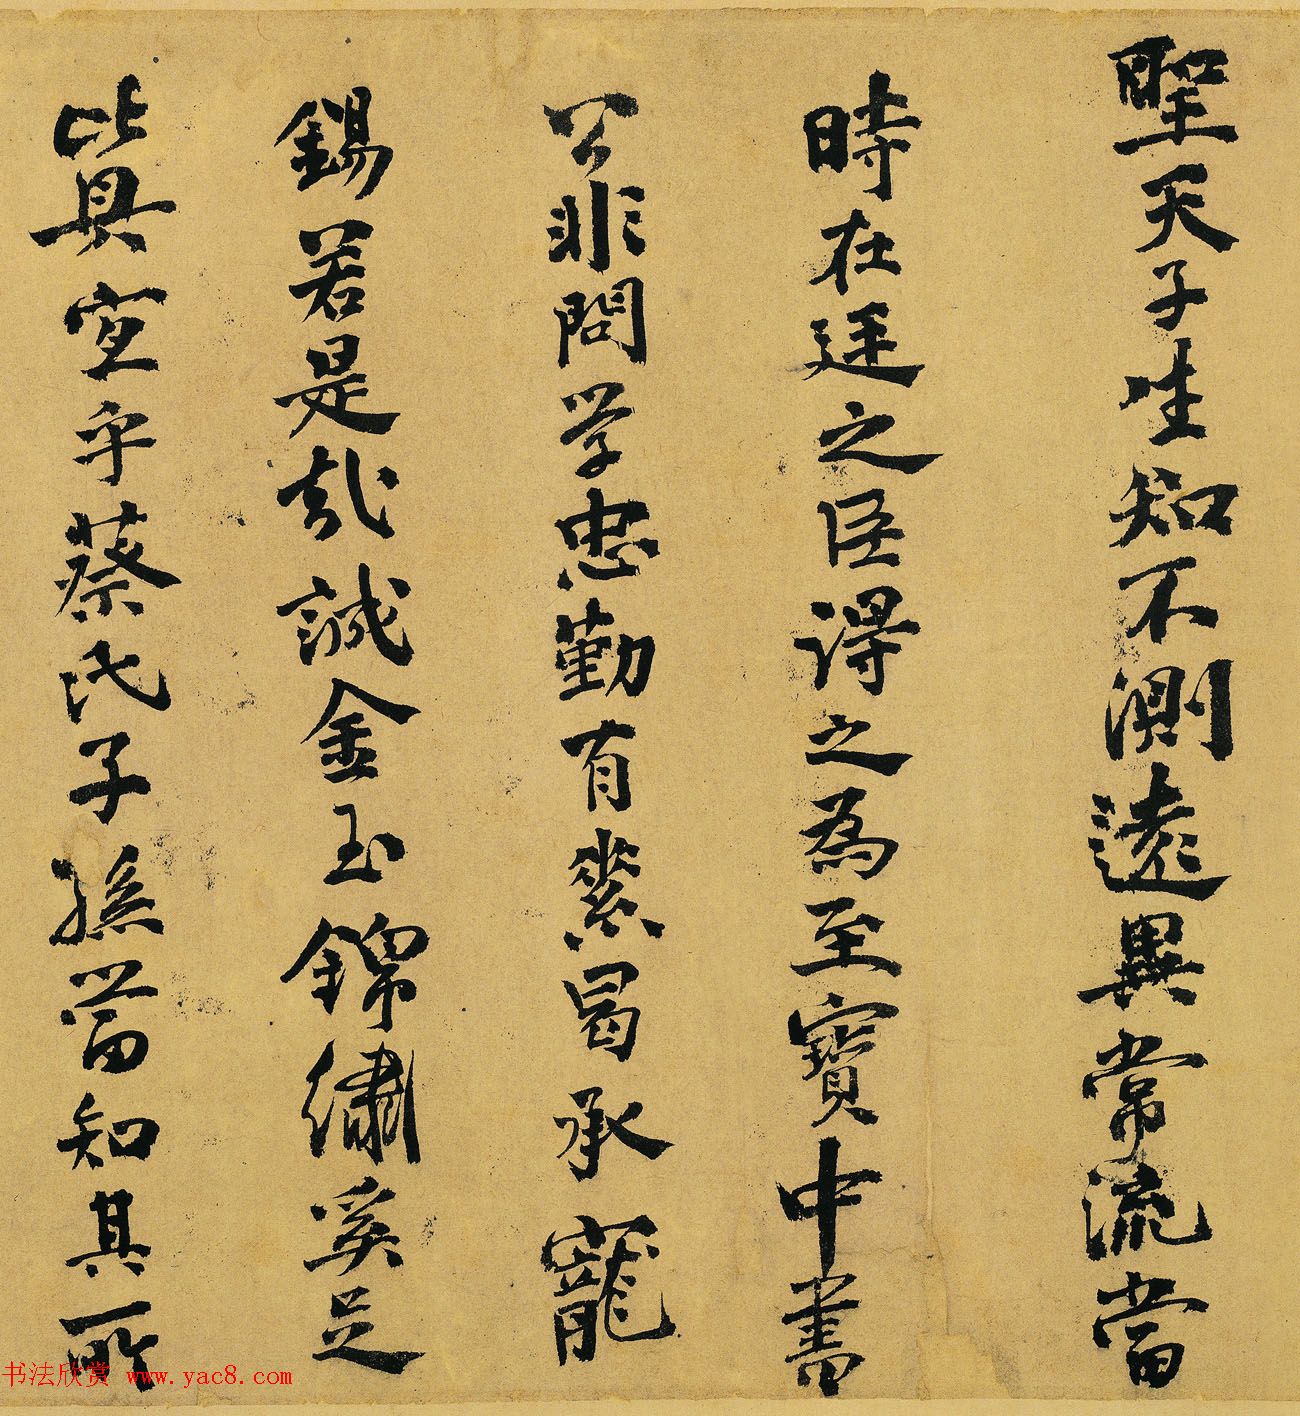 聖天子生知不測遠異常流當
時在廷之臣得之為至寶中書
公非問学忠勤有素曷承寵
錫若是哉誠金玉錦繡奚足
比其直乎蔡氏子孫當知其所
书法欣赏 www.yac8.com